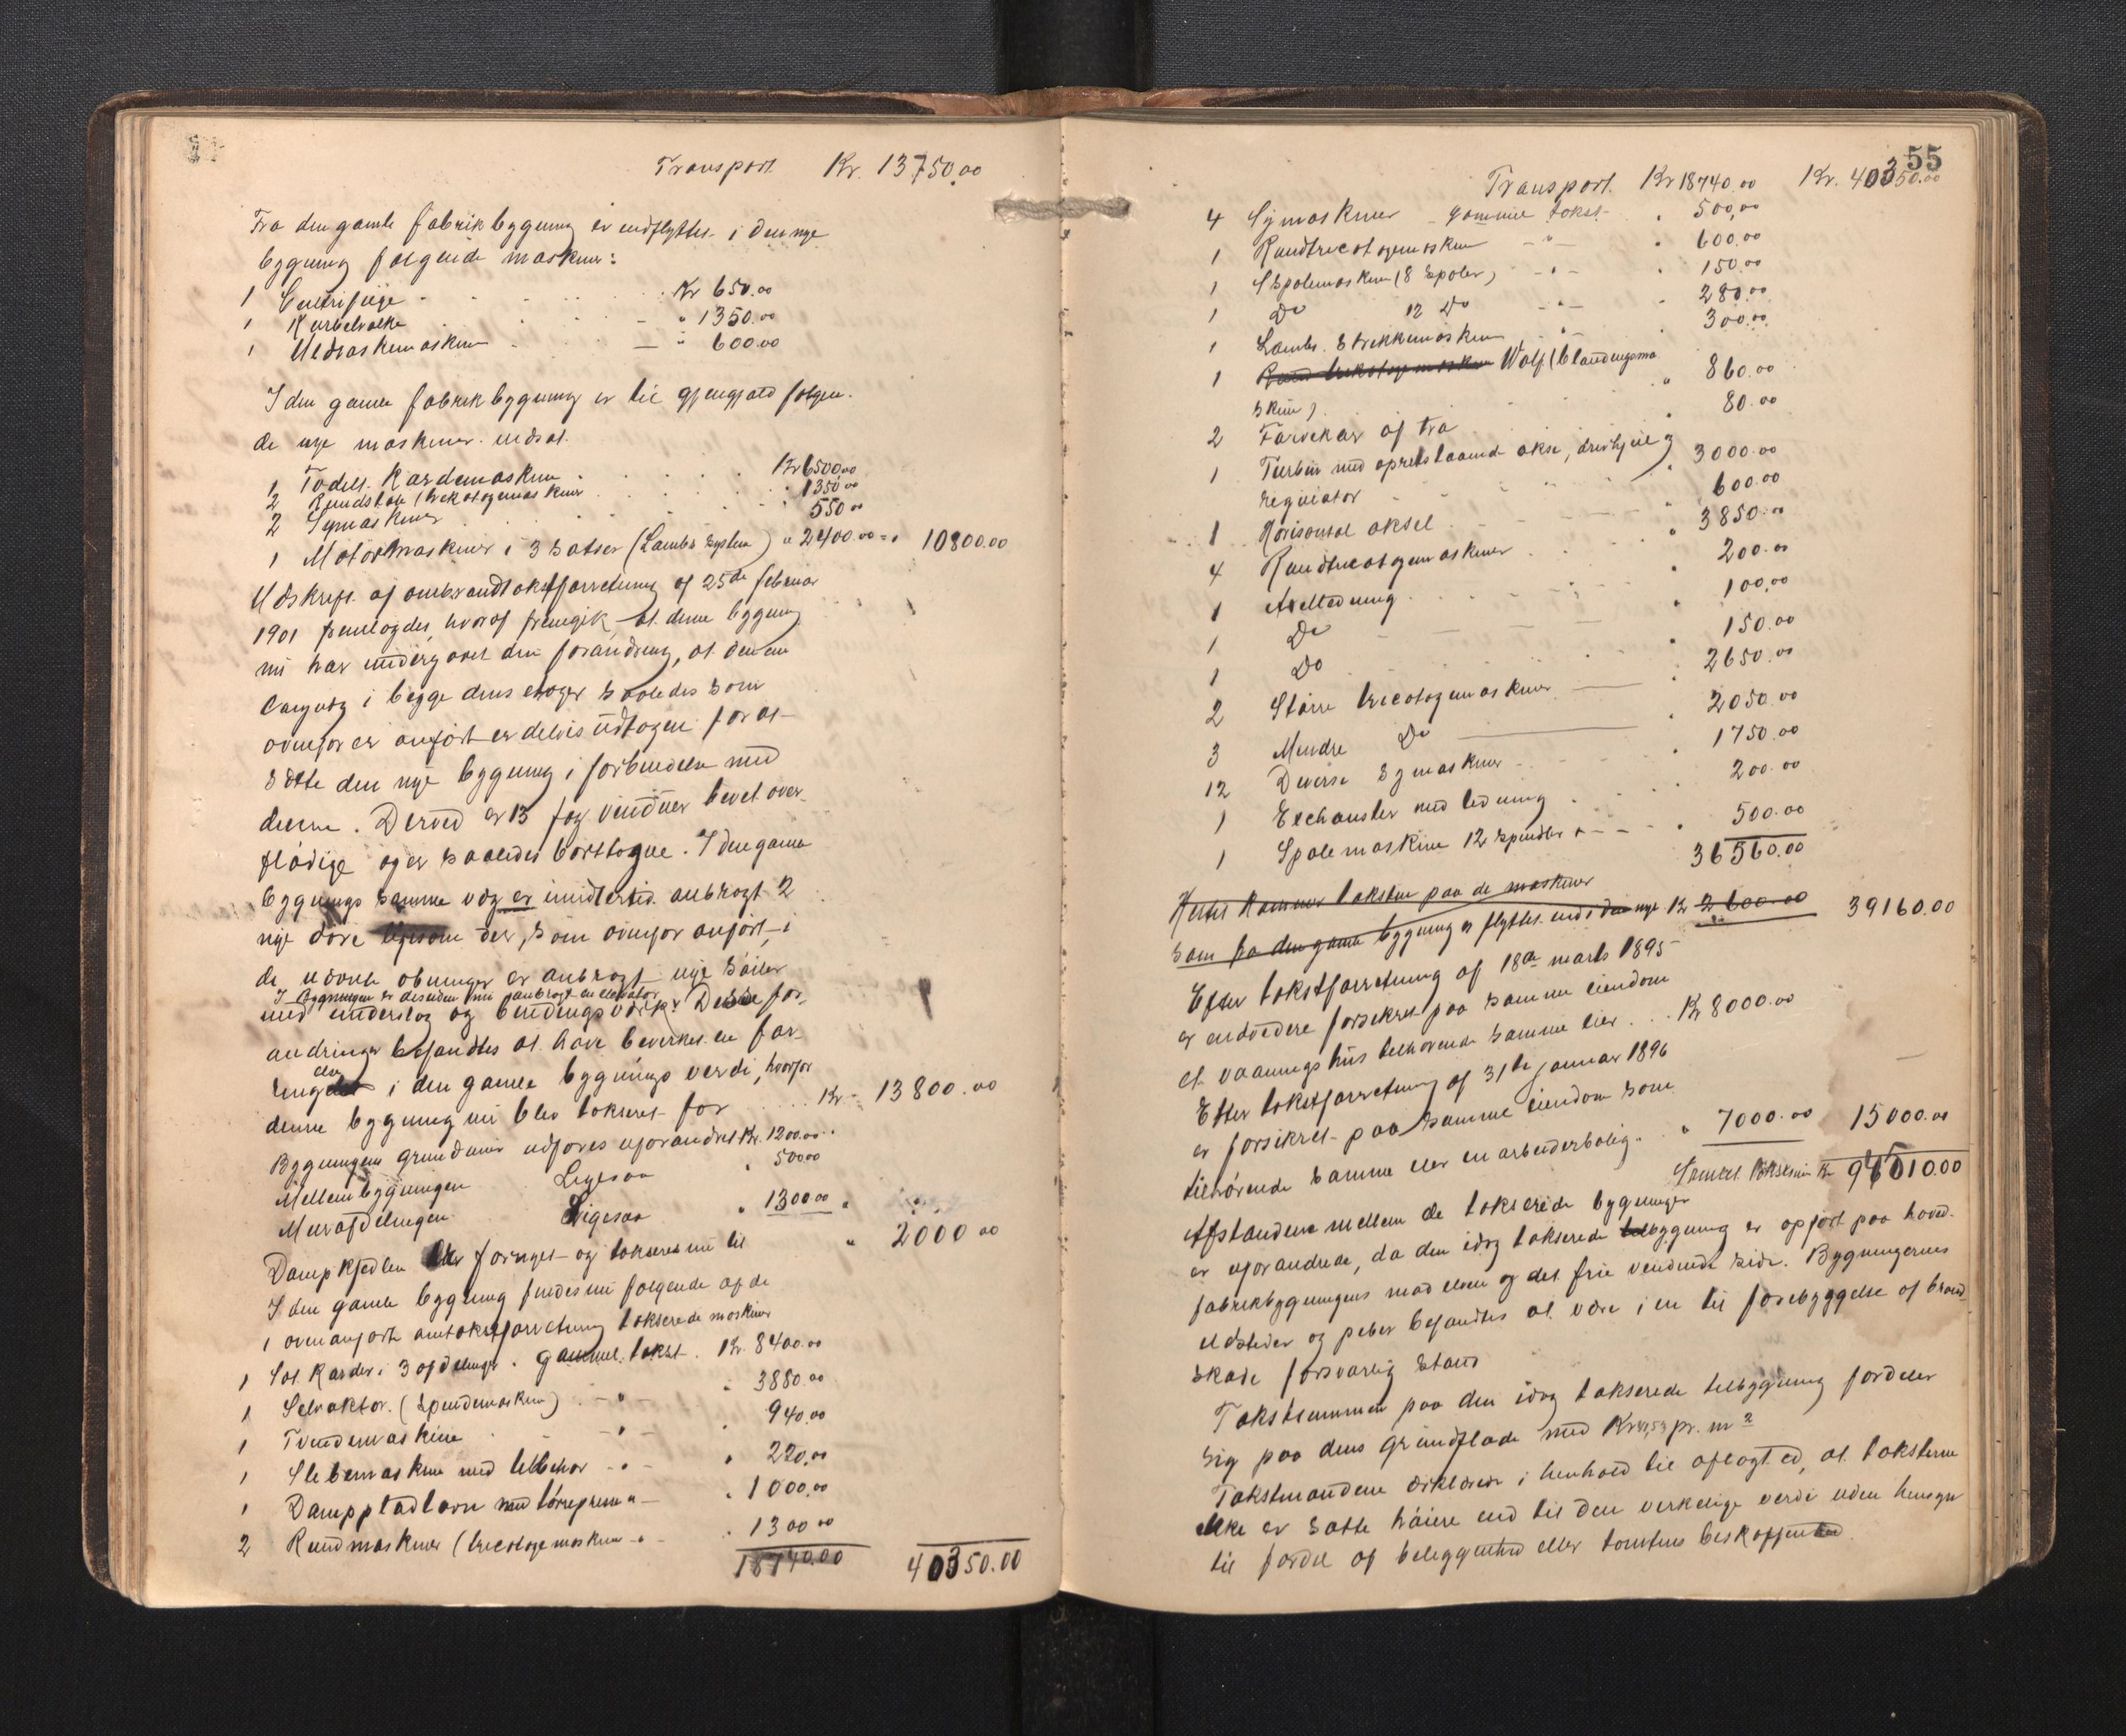 Transport Kr. 13750.00
Fra den gamle fabrikbygning er indflyttet i den nye
bygning følgende maskiner:
1 Centrifuge Kr 650.00
1 Kurbelvalke " 1350.00
1 Uldvaskemaskine " 600.00
I den gamle fabrikbygning er til gjengjæld følgen-
de nye maskiner indsat.
1 Todelt Kardemaskine Kr 6500.00
2 Rundstole (trekotagemaskiner " 1350.00
2 Symaskiner " 550.00
1 Motormaskiner i 3 satser (Lambs system) " 2400.00 = " 10800.00
Udskrift af ombrandtakstforretning af 25de februar
1901 fremlagdes, hvoraf fremgik, at denne bygning
nu har undergaaet den forandring, at den ene
langvæg i begge dens etager saaledes som
ovenfor er anført er delvis udtagen for at
sætte den nye bygning i forbindelse med
denne. Derved er 13 fag vinduer blevet over-
flødige og er saaledes borttagne. I den gamle
bygnings samme væg er imidlertid anbragt 2
nye døre der, som ovenfor anført, i
de udvidede åbninger er anbragt nye søiler
I bygningen er desuden nu anbragt en elevator
med underslag og bindingsværk. Disse for-
andringer befandtes at have bevirket en for-
else i den gamle bygnings verdi, hvorfor
denne bygning nu blev takseret for Kr - 13800.00
Bygningens grundmur udføres uforandret Kr. 1200.00
Mellembygningen Ligesaa " 500.00
Murafdelingen Ligesaa " 1300.00 "
Dampkjedlen er fornyet og takseres nu til " 2000 00
I den gamle bygning findes nu følgende af de
i ovenanførte omtakstforretning takserede maskiner
1 Sæt Karder i 3 afdelinger. gammel takst. Kr. 8400.00
1 Selvaktor. (Spindemaskine) - " - " 3880.00
1 Tvindemaskine - " - " 940.00
1 Slibemaskine med tilbehør - " - " 220.00
1 Damppladeovn med tørrepresse " - " 1000.00
2 Rundmaskiner (tricotagemaskiner - " - " 1300 00
18740.00 40350.00
55
Transport. Kr 18740.00 Kr. 40350.00
4 Symaskiner - gammel takst - " 500.00
1 Rundtricotagemaskine - " - " 600.00
1 Spolemaskine (8 Spoler) - " - " 150.00
1 Do 12 Do - " - " 280.00
1 Lambs. Strikkemaskine - " 300.00
1 Rundtrikotagemaskine Wolf (blandingsma
skine) " 860.00
2 Farvekar af træ " 80.00
1 Turbin med opretstaaende akse, drivhjul og
regulator " 3000.00
1 Horisontal aksel " 600.00
4 Rundtricotagemaskiner " 3850.00
1 Axelledning " 200.00
1 Do " 100.00
1 Do " 150.00
2 Større tricotagemaskiner " 2650.00
3 Mindre Do " 2050.00
12 Diverse symaskiner " 1750.00
1 Exchauster med ledning " 200.00
1 Spolemaskine 12 spindler " 500.00
36560.00
Hertil kommer taksten paa de maskiner
som fra den gamle bygning er flyttet ind i den nye Kr 2600.00 39160.00
Efter takstforretning af 18de marts 1895
er endvidere forsikret paa samme eiendom
et vaaningshus tilhørende samme eier Kr 8000.00
Efter takstforretning af 31te januar 1896
er forsikret paa samme eiendom som
tilhørende samme eier en arbeiderbolig. " 7000.00 15000.00
Samlet takstsum Kr 94510.00
Afstandene mellem de takserede bygninger
er uforandrede, da den idag takserede tilbygning er opført paa hoved-
fabrikbygningens mod elven og det frie vendende side. Bygningernes
ildsteder og piber befandtes at være i en til forebyggelse af brand-
skade forsvarlig stand
Takstsummen paa den idag takserede tilbygning fordeler
sig paa dens grundflade med Kr pr. m²
Takstmændene erklærede i henhold til aflagt ed, at taksterne
ikke er satte høiere end til den verkelige verdi uden hensyn
til fordel af beliggenhed eller tomtens beskaffenhed.